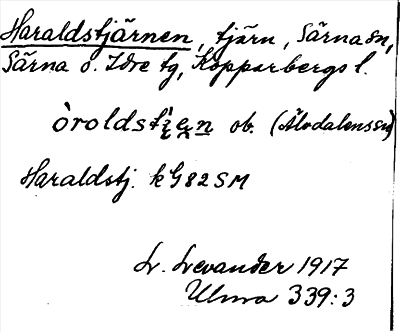 Haraldstjärnen, tjärn, Särna sn,
Särna o. Idre tg, Kopparbergs l.
òroldstı̯ɛ̀n ob. (Älvdalenssn)
Haraldstj. k G82 SM
L. Levander 1917
Ulma 339:3